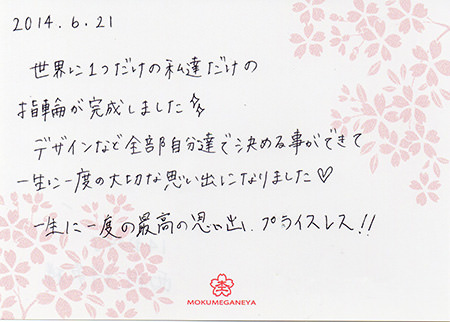 2014.6.21
世界に1つだけの私達だけの
指輪が完成しました
デザインなど全部自分達で決める事ができて
一生に一度の大切な思い出になりました♡
一生に一度の最高の思い出、プライスレス!!
MOKUMEGANEYA